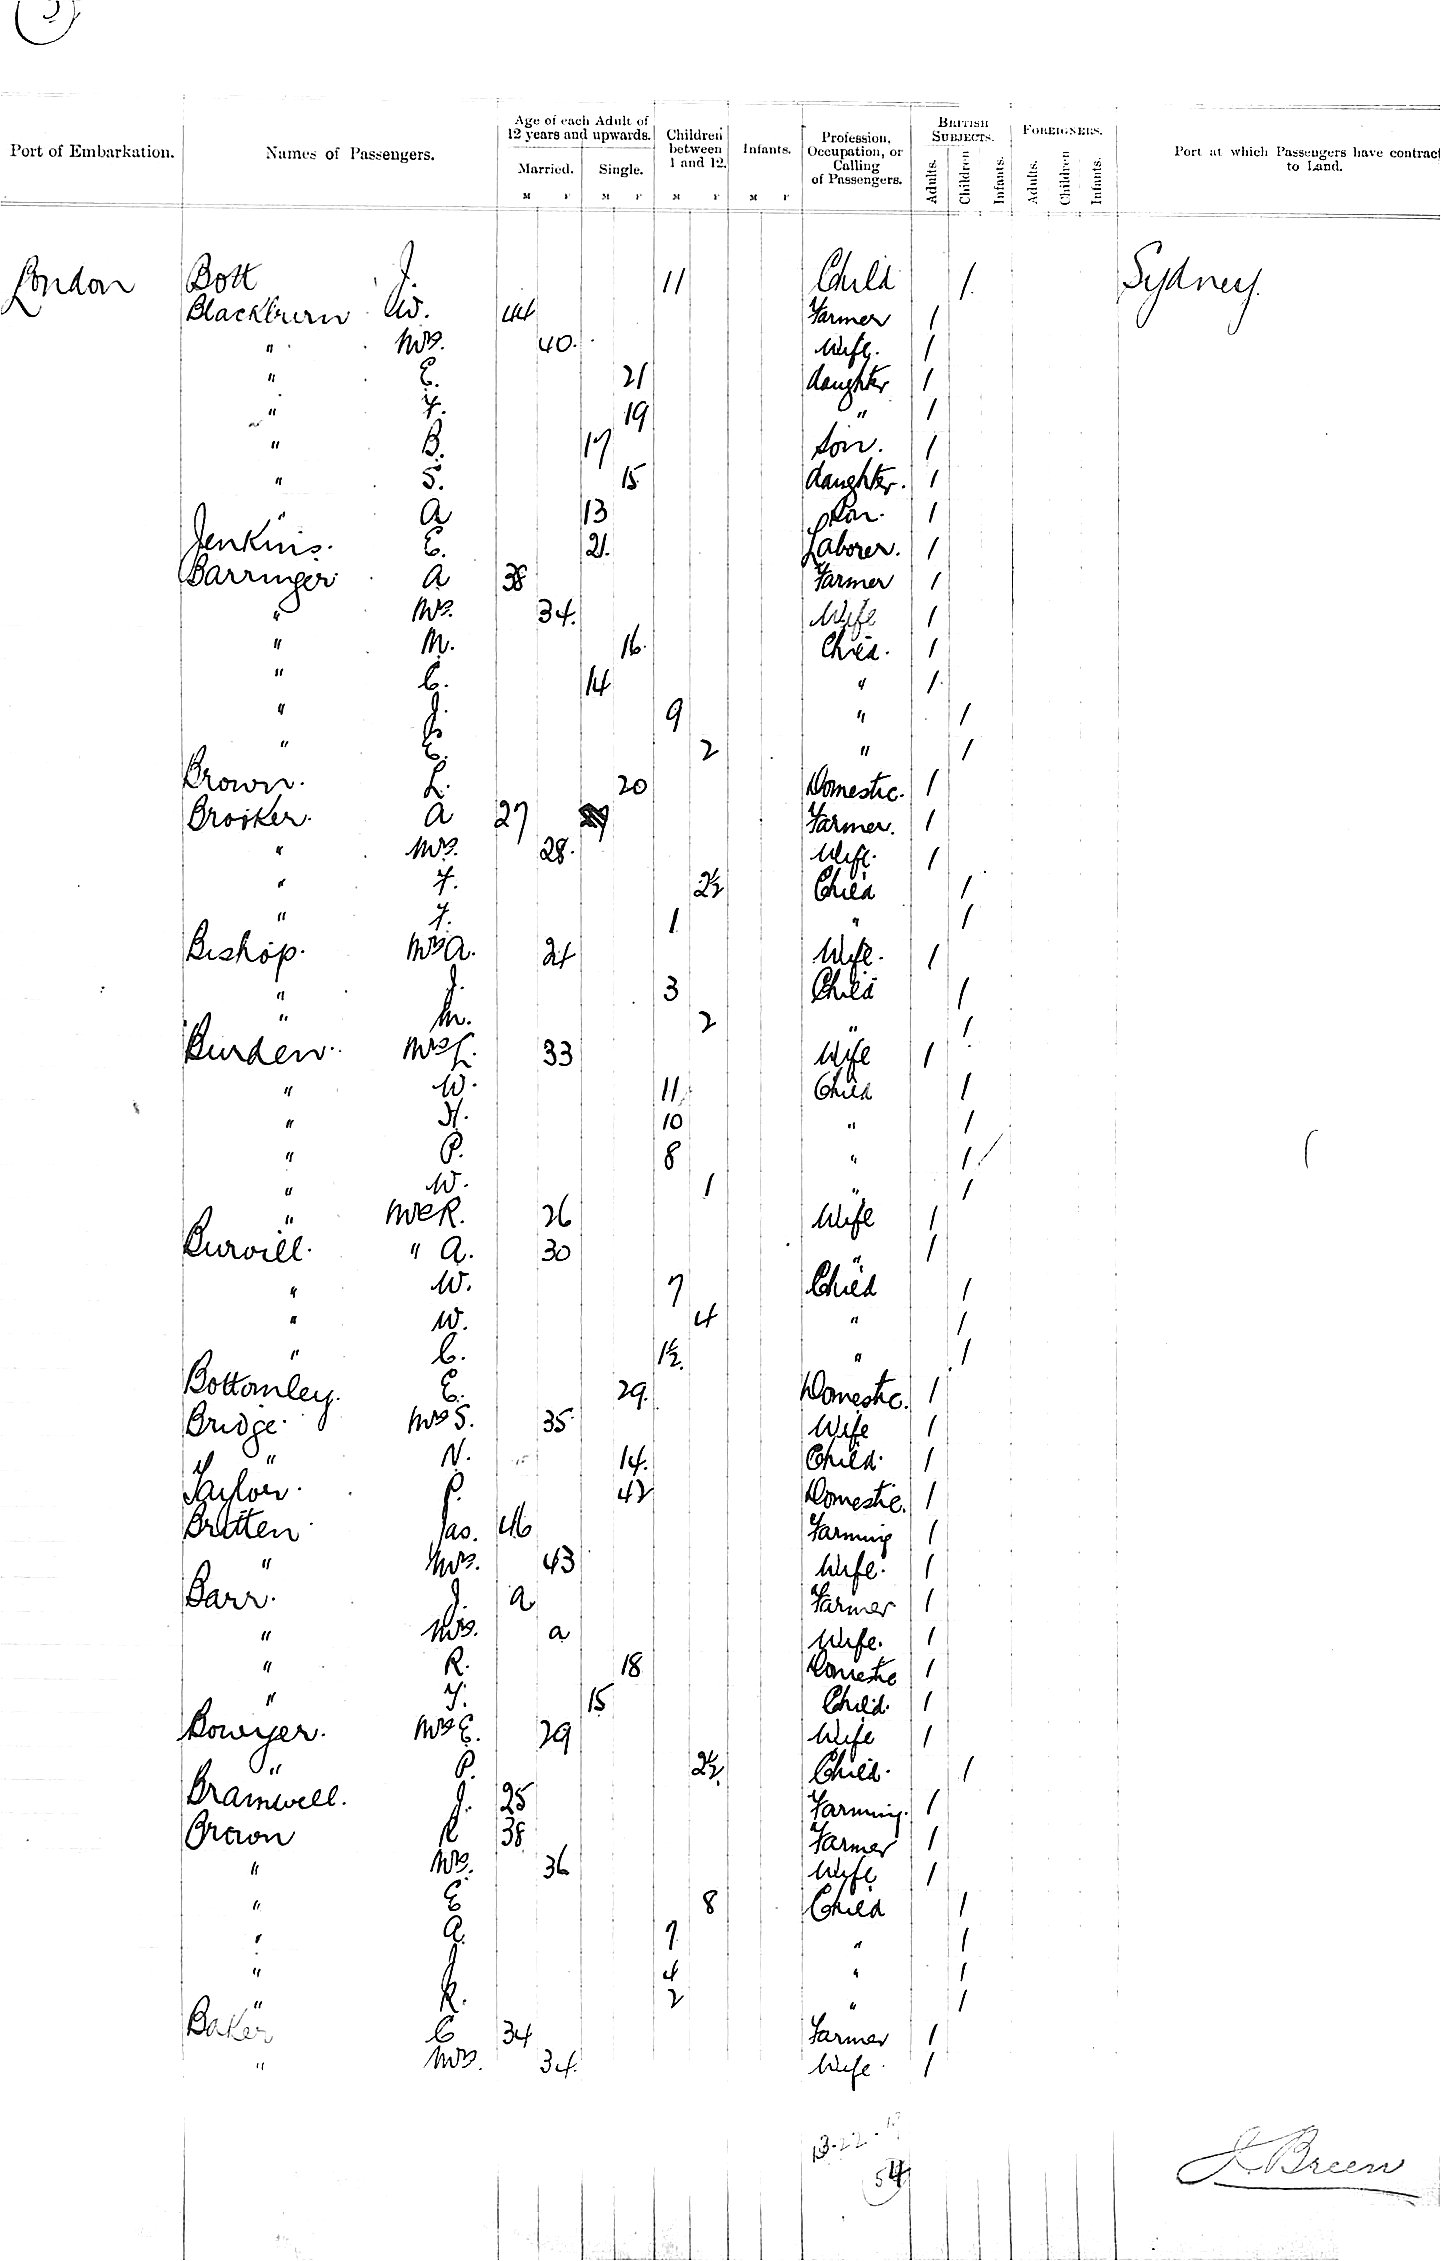 3
Port of Embarkation. Names of Passengers. Age of each Adult of 12 years and upwards. Married. Single. M F M F Children between 1 and 12. M F Infants. M F Profession, Occupation, or Calling of Passengers. BRITISH SUBJECTS. Adults. Children Infants. FOREIGNERS. Adults. Children Infants. Port at which Passengers have contract to Land.
London Bott J. 11 Child 1 Sydney.
Blackburn W. 44 Farmer 1
" Mrs. 40. Wife. 1
" E. 21 daughter 1
" F. 19 " 1
" B. 17 Son. 1
" S. 15 daughter. 1
" A 13 Son. 1
Jenkins. E. 21. Laborer. 1
Barringer A 38 Farmer 1
" Mrs. 34. Wife 1
" M. 16. Child. 1
" C. 14 " 1
" J. 9 " 1
" E. 2 " 1
Brown. L. 20 Domestic. 1
Brooker. A 27 Farmer. 1
" Mrs. 28. Wife. 1
" F. 2½ Child 1
" F. 1 " 1
Bishop. Mrs A. 24 Wife. 1
" J. 3 Child 1
" M. 2 " 1
Burden. Mrs L. 33 Wife 1
" W. 11 Child 1
" H. 10 " 1
" P. 8 " 1
" W. 1 " 1
" Mrs R. 26 Wife 1
Burvill. " A. 30 " 1
" W. 7 Child 1
" W. 4 " 1
" C. 1½ " 1
Bottomley. E. 29. Domestic. 1
Bridge. Mrs S. 35 Wife 1
" N. 14. Child. 1
Taylor. P. 42 Domestic. 1
Britten Jas. 46 Farming 1
" Mrs. 43 Wife. 1
Barr. J. a Farmer 1
" Mrs. a Wife. 1
" R. 18 Domestic 1
" T. 15 Child. 1
Bowyer. Mrs E. 29 Wife 1
" P. 2½ Child. 1
Bramwell. J. 25 Farming. 1
Brown R 38 Farmer 1
" Mrs. 36 Wife 1
" E 8 Child 1
" A. 7 " 1
" J 4 " 1
" R. 2 " 1
Baker C 34 Farmer 1
" Mrs. 34. Wife. 1
13-22-
54
J. Breen